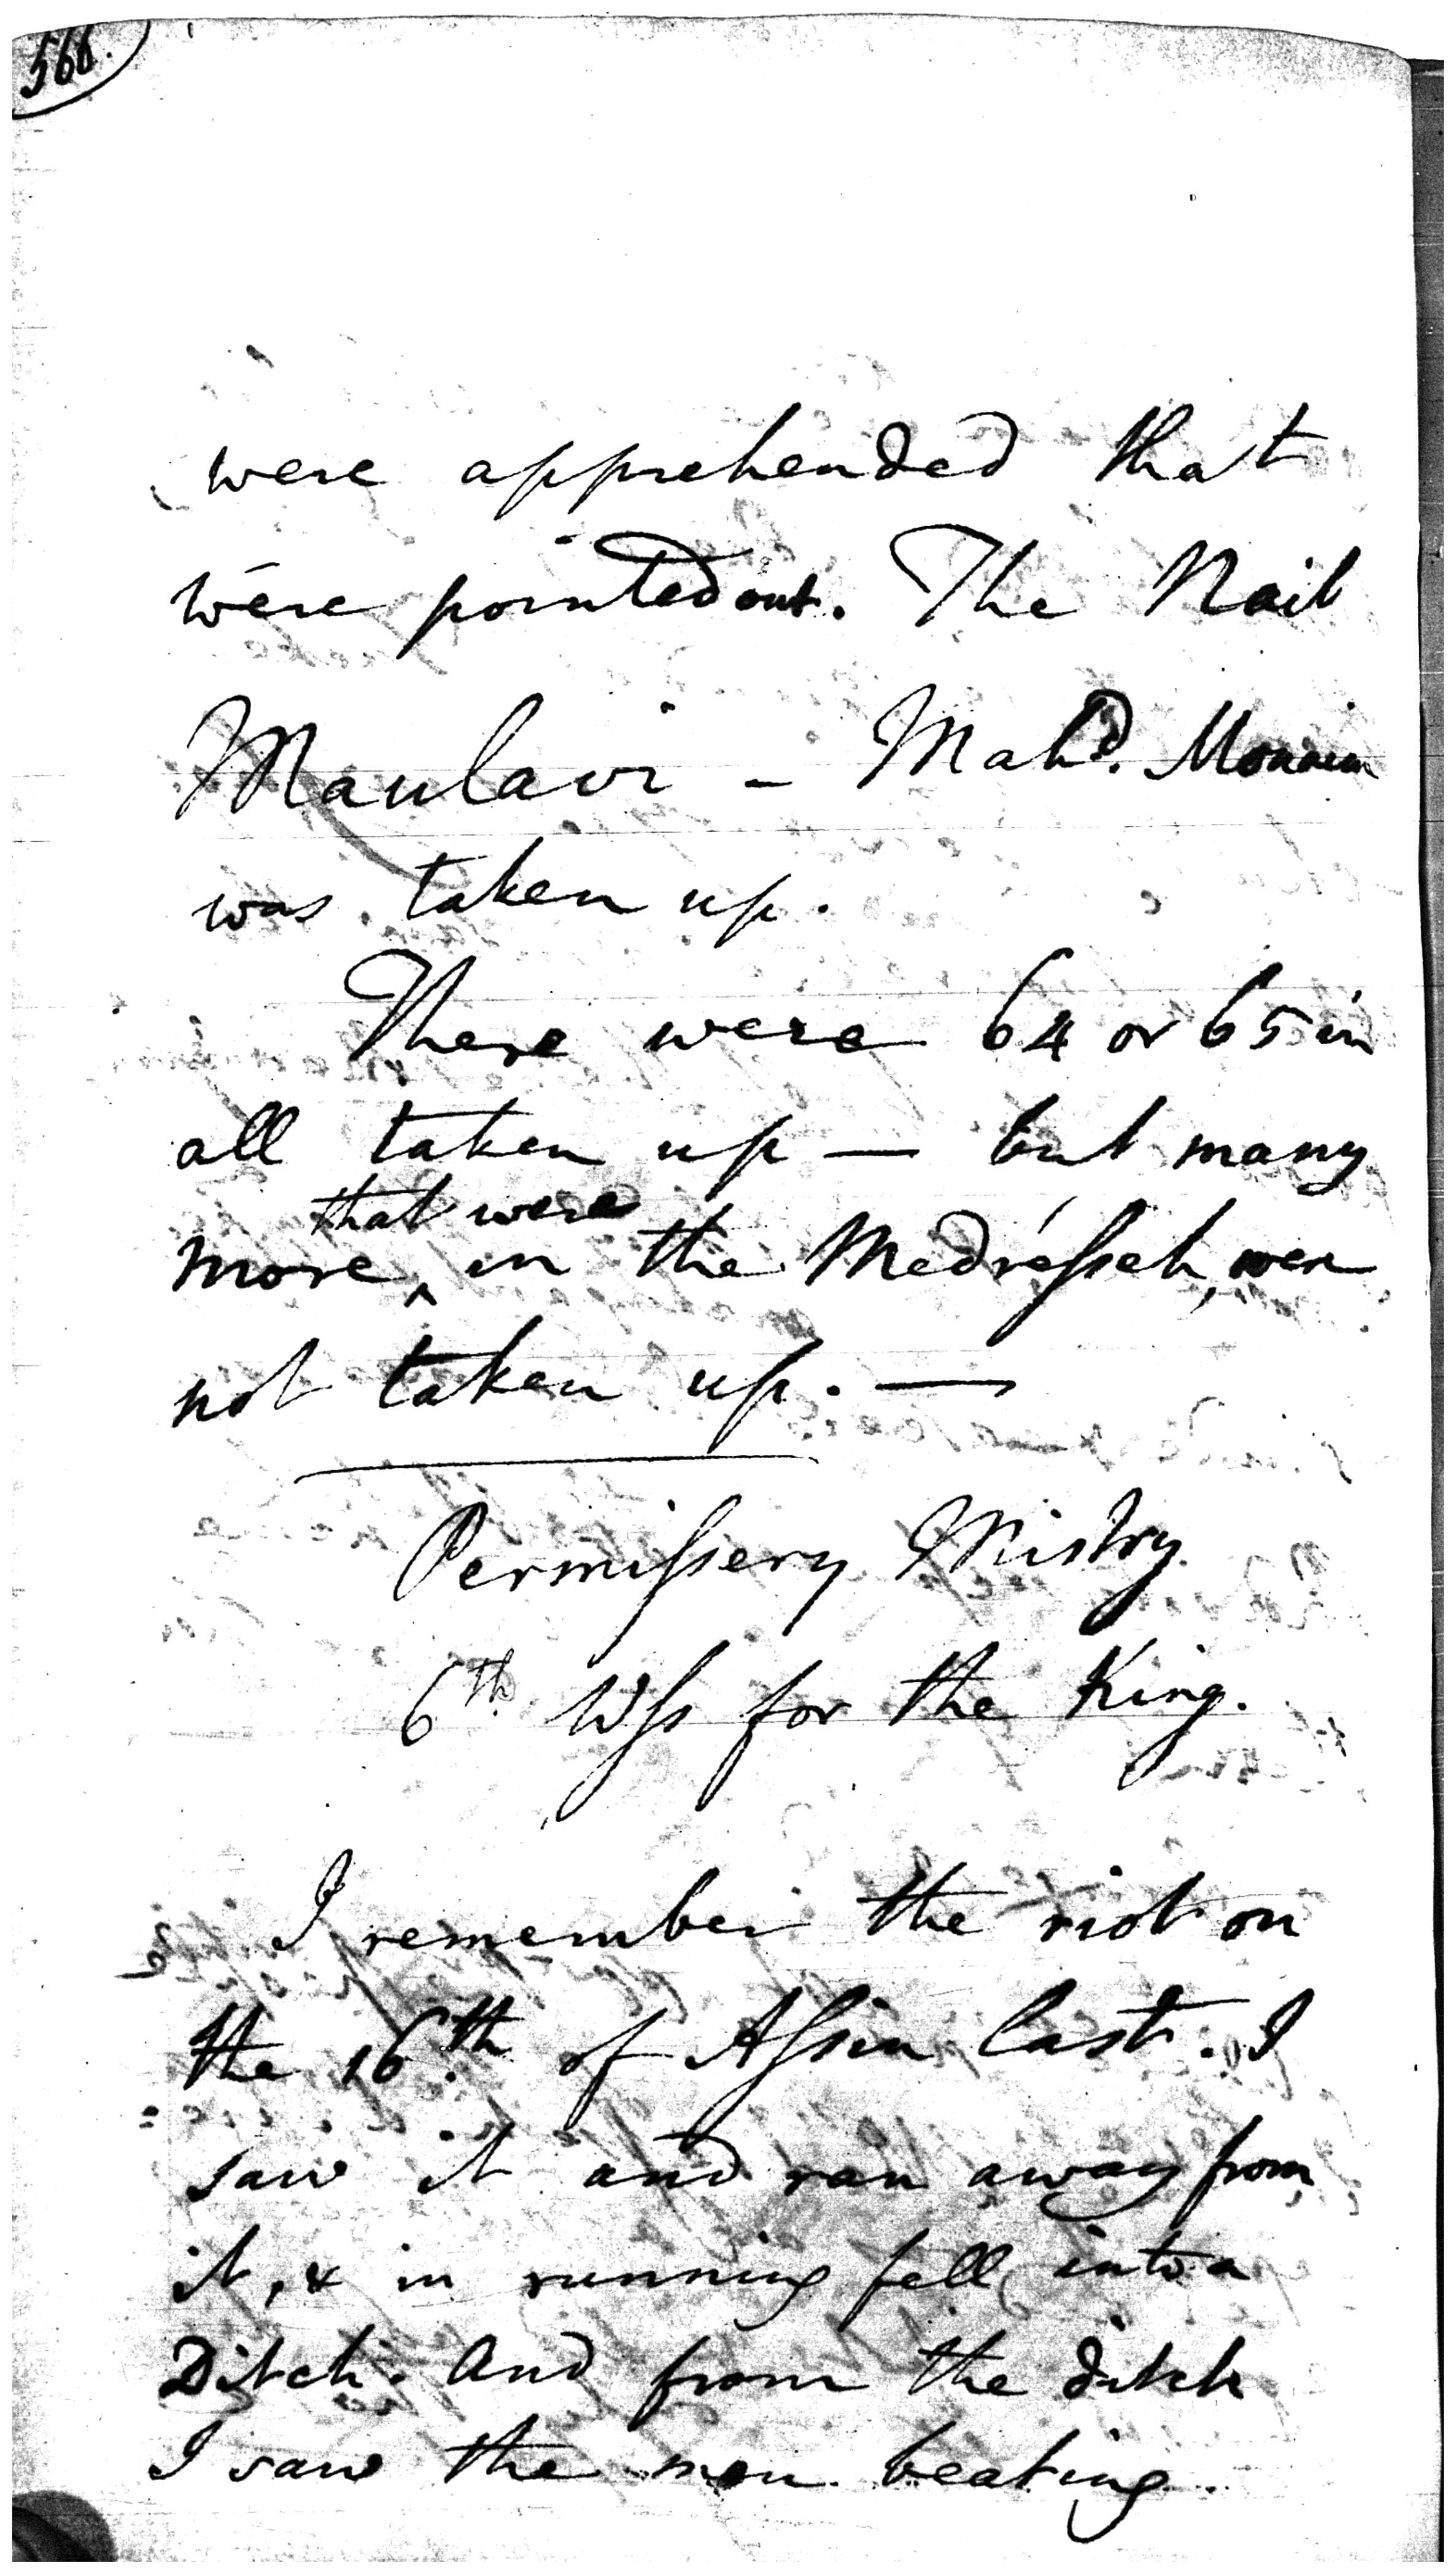 566.
were apprehended that
were pointed out. The Naib
Maulavi - Mahd.
was taken up.
There were 64 or 65 in
all taken up — but many
that were
more ^ in the Medresseh, were
not taken up. —
Permissery Mistry
6th. Wss for the King.
I remember the riot on
the 16th. of Assin last. I
saw it and ran away from
it, & in running fell into a
Ditch. And from the ditch
I saw the men beating.